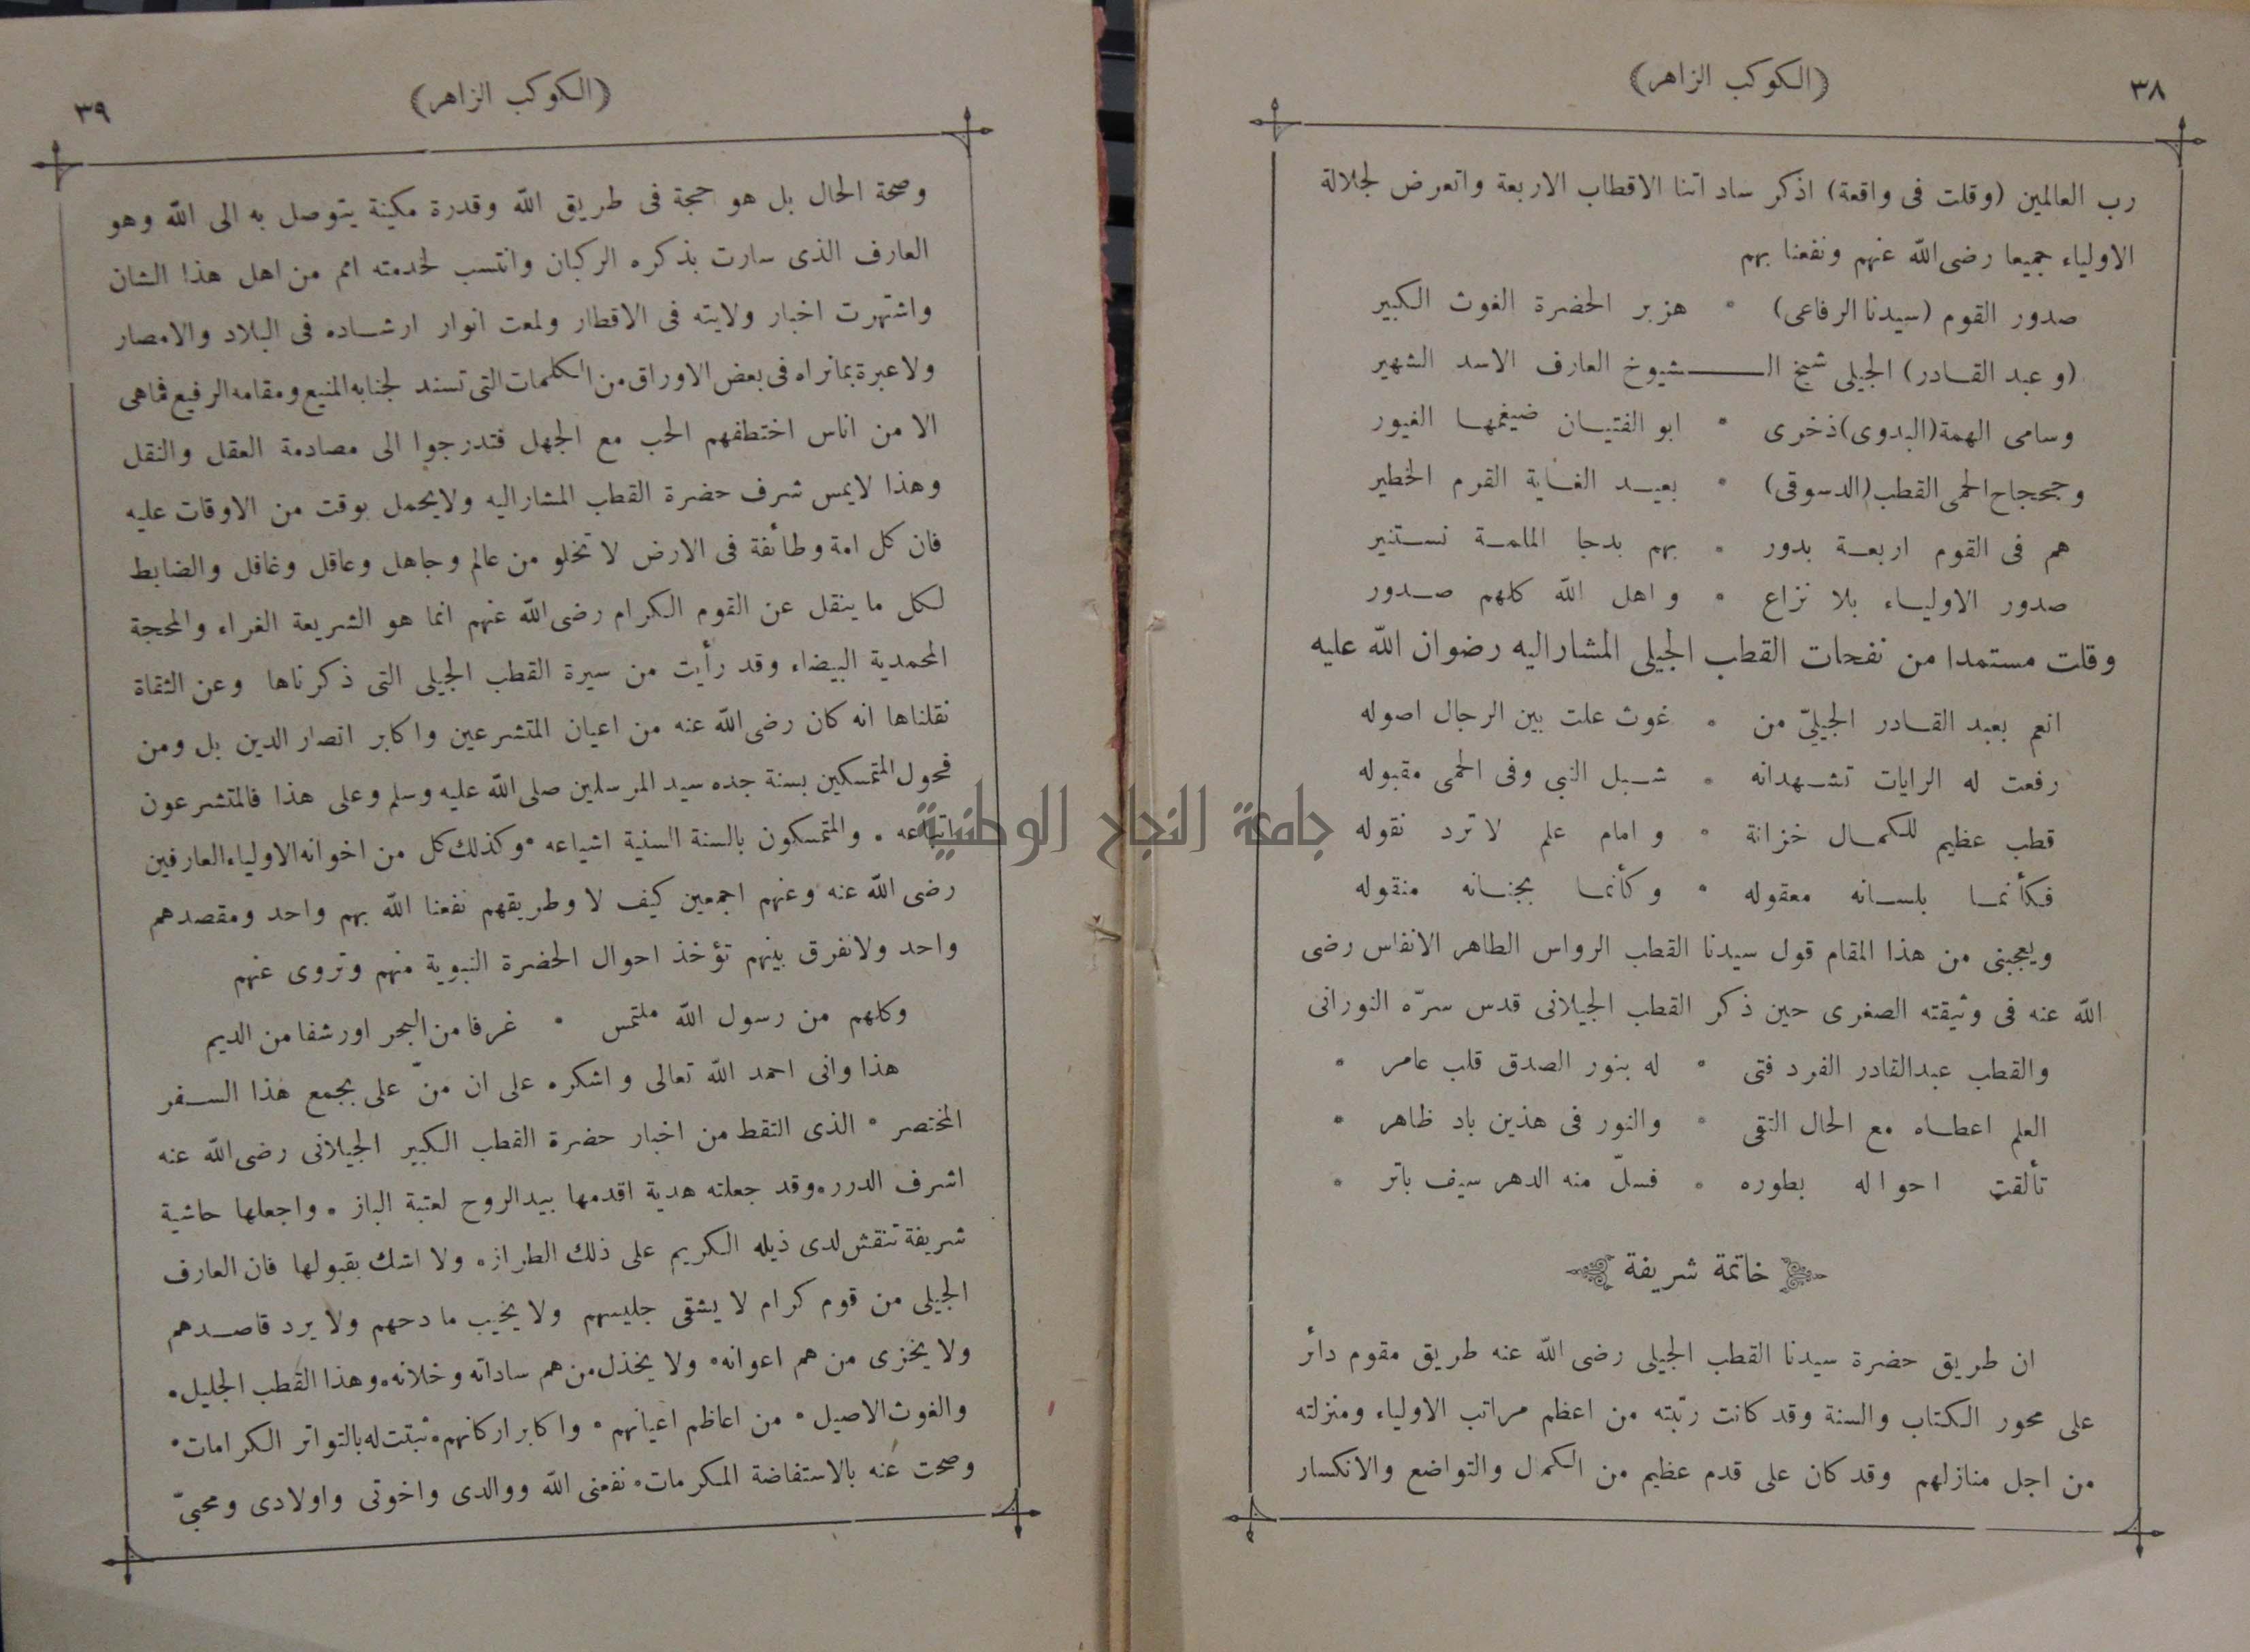 ٣٨
(الكوكب الزاهر)
رب العالمين (وقلت فى واقعة) اذكر ساداتنا الاقطاب الاربعة واتعرض لجلالة
الاولياء جميعا رضى الله عنهم ونفعنا بهم
صدور القوم (سيدنا الرفاعى) ° هزبر الحضرة الغوث الكبير
(وعبد القادر) الجيلى شيخ الـــشيوخ العارف الاسد الشهير
وسامى الهمة (البدوى) ذخرى ° ابو الفتيان ضيغمها الغيور
وجحجاح الحمى القطب (الدسوقى) ° بعيد الغاية القرم الخطير
هم فى القوم اربعة بدور ° بهم بدجا الملمة نستنير
صدور الاولياء بلا نزاع ° واهل الله كلهم صدور
وقلت مستمدا من نفحات القطب الجيلى المشاراليه رضوان الله عليه
انعم بعبد القادر الجيليّ من ° غوث علت بين الرجال اصوله
رفعت له الرايات تشهدانه ° شبل النبى وفى الحمى مقبوله
قطب عظيم للكمال خزانة ° وامام علم لا ترد نقوله
فكأنما بلسانه معقوله ° وكأنما بجنانه منقوله
ويعجبنى من هذا المقام قول سيدنا القطب الرواس الطاهر الانفاس رضى
الله عنه فى وثيقته الصغرى حين ذكر القطب الجيلانى قدس سرّه النورانى
والقطب عبدالقادر الفرد فتى ° له بنور الصدق قلب عامر °
العلم اعطاه مع الحال التقى ° والنور فى هذين باد ظاهر °
تألقت احواله بطوره ° فسلّ منه الدهر سيف باتر °
خاتمة شريفة
ان طريق حضرة سيدنا القطب الجيلى رضى الله عنه طريق مقوم دائر
على محور الكتاب والسنة وقد كانت رتبته من اعظم مراتب الاولياء ومنزلته
من اجل منازلهم وقد كان على قدم عظيم من الكمال والتواضع والانكسار
٣٩
(الكوكب الزاهر)
وصحة الحال بل هو حجة فى طريق الله وقدرة مكينة يتوصل به الى الله وهو
العارف الذى سارت بذكره الركبان وانتسب لخدمته امم من اهل هذا الشان
واشتهرت اخبار ولايته فى الاقطار ولمعت انوار ارشاده فى البلاد والامصار
ولا عبرة بمانراه فى بعض الاوراق من الكلمات التى تسند لجنابه المنيع ومقامه الرفيع فماهى
الا من اناس اختطفهم الحب مع الجهل فتدرجوا الى مصادمة العقل والنقل
وهذا لايمس شرف حضرة القطب المشاراليه ولايحمل بوقت من الاوقات عليه
فان كل امة وطائفة فى الارض لا تخلو من عالم وجاهل وعاقل وغافل والضابط
لكل ما ينقل عن القوم الكرام رضى الله عنهم انما هو الشريعة الغراء والمحجة
المحمدية البيضاء وقد رأيت من سيرة القطب الجيلى التى ذكرناها وعن الثقاة
نقلناها انه كان رضى الله عنه من اعيان المتشرعين واكابر انصار الدين بل ومن
فحول المتمسكين بسنة جده سيد المرسلين صلى الله عليه وسلم وعلى هذا فالمتشرعون
اتباعه ° والمتمسكون بالسنة السنية اشياعه ° وكذلك كل من اخوانه الاولياء العارفين
رضى الله عنه وعنهم اجمعين كيف لا وطريقهم نفعنا الله بهم واحد ومقصدهم
واحد ولانفرق بينهم تؤخذ احوال الحضرة النبوية منهم وتروى عنهم
وكلهم من رسول الله ملتمس ° غرفا من البحر اورشفا من الديم
هذا وانى احمد الله تعالى واشكره على ان منّ على بجمع هذا السفر
المختصر ° الذى التقط من اخبار حضرة القطب الكبير الجيلانى رضى الله عنه
اشرف الدرر ° وقد جعلته هدية اقدمها بيد الروح لعتبة الباز ° واجعلها حاشية
شريفة تنقش لدى ذيله الكريم على ذلك الطراز ° ولا اشك بقبولها فان العارف
الجيلى من قوم كرام لا يشقى جليسهم ولا يخيب مادحهم ولا يرد قاصدهم
ولا يخزى من هم اعوانه ° ولا يخذل من هم ساداته وخلانه ° وهذا القطب الجليل °
والغوث الاصيل ° من اعاظم اعيانهم ° واكابر اركانهم ° ثبتت له بالتواتر الكرامات °
وصحت عنه بالاستفاضة المكرمات ° نفعنى الله ووالدى واخوتى واولادى ومحبيّ
جامعة النجاح الوطنية